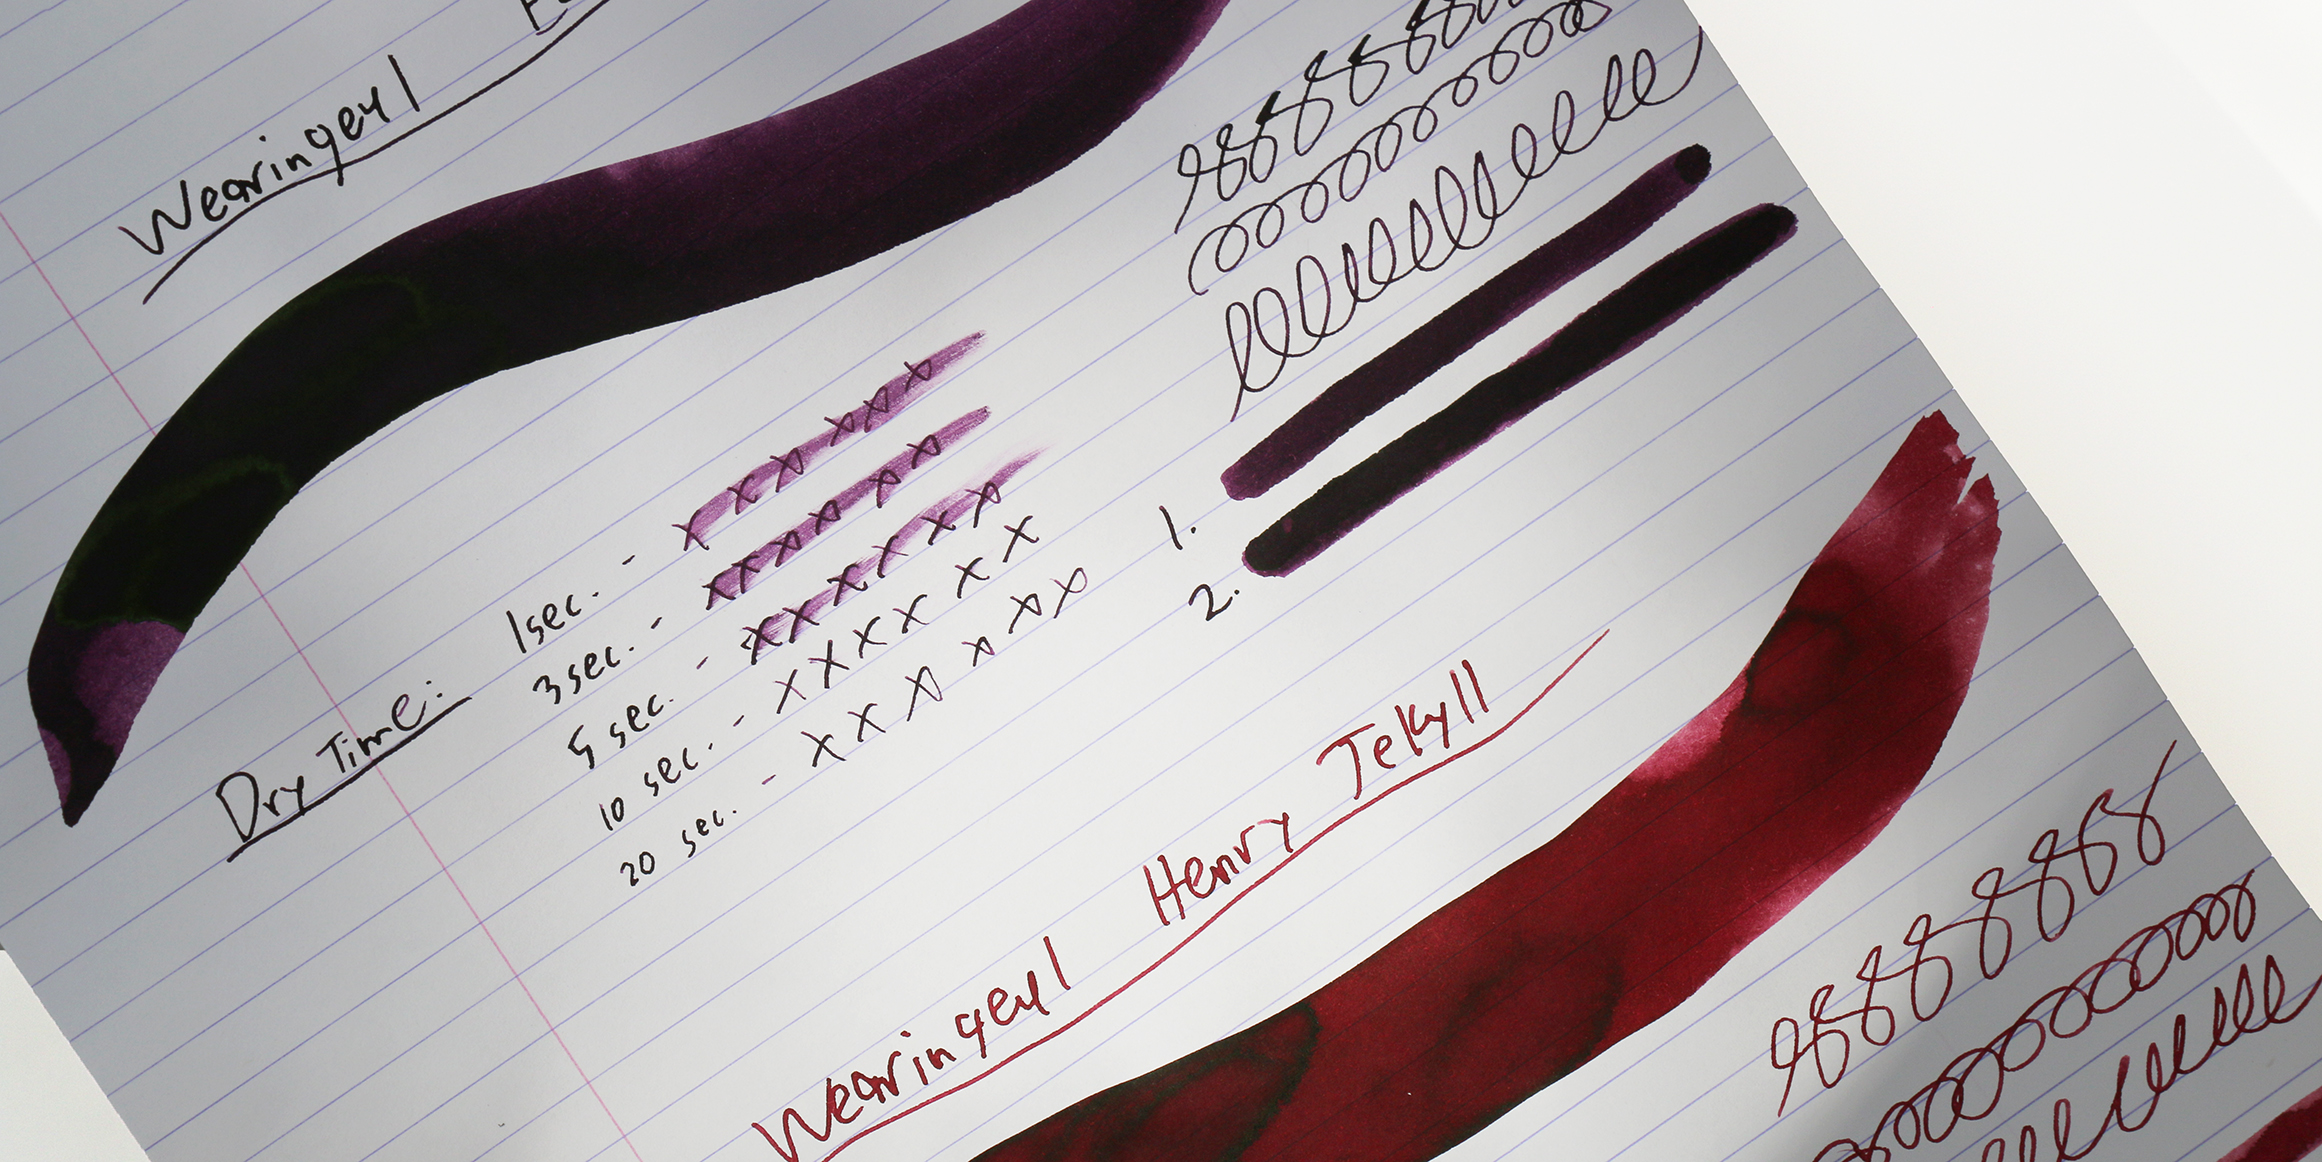 Wearingeul
Dry Time:
1sec. - x x x x x x
3sec. - x x x x x x
5 sec. - x x x x x x
10 sec. - x x x x x x
20 sec. - x x x x x x
1.
2.
Wearingeul Henry Jekyll